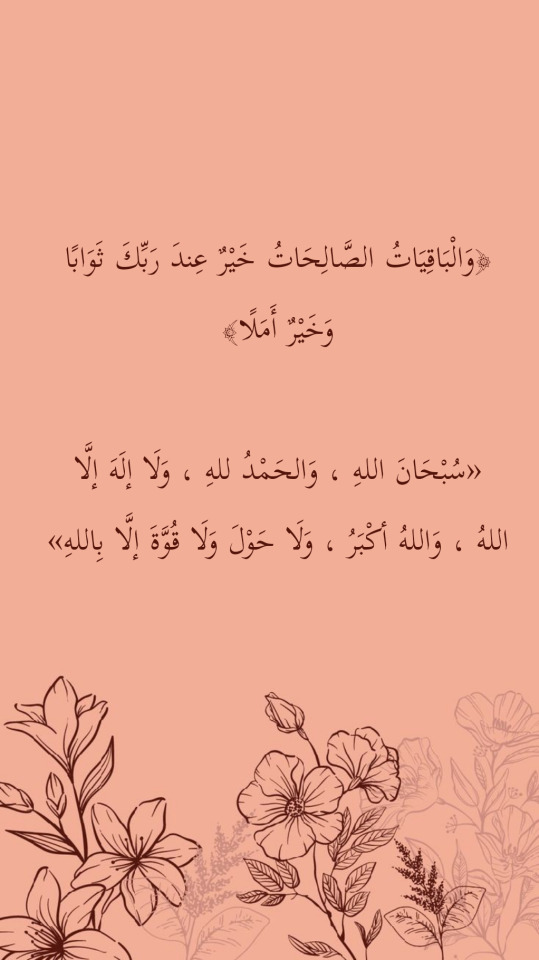 ﴿وَالْبَاقِيَاتُ الصَّالِحَاتُ خَيْرٌ عِندَ رَبِّكَ ثَوَابًا
وَخَيْرٌ أَمَلًا﴾
«سُبْحَانَ اللهِ ، وَالحَمْدُ للهِ ، وَلَا إلَهَ إلَّا
اللهُ ، وَاللهُ أكْبَرُ ، وَلَا حَوْلَ وَلَا قُوَّةَ إلَّا بِاللهِ»